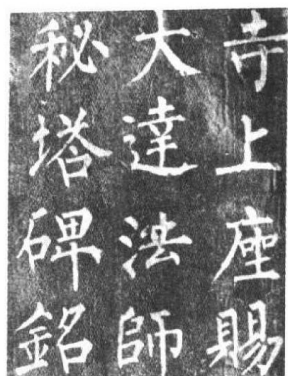 寺上座賜
大達法師
秘塔碑銘